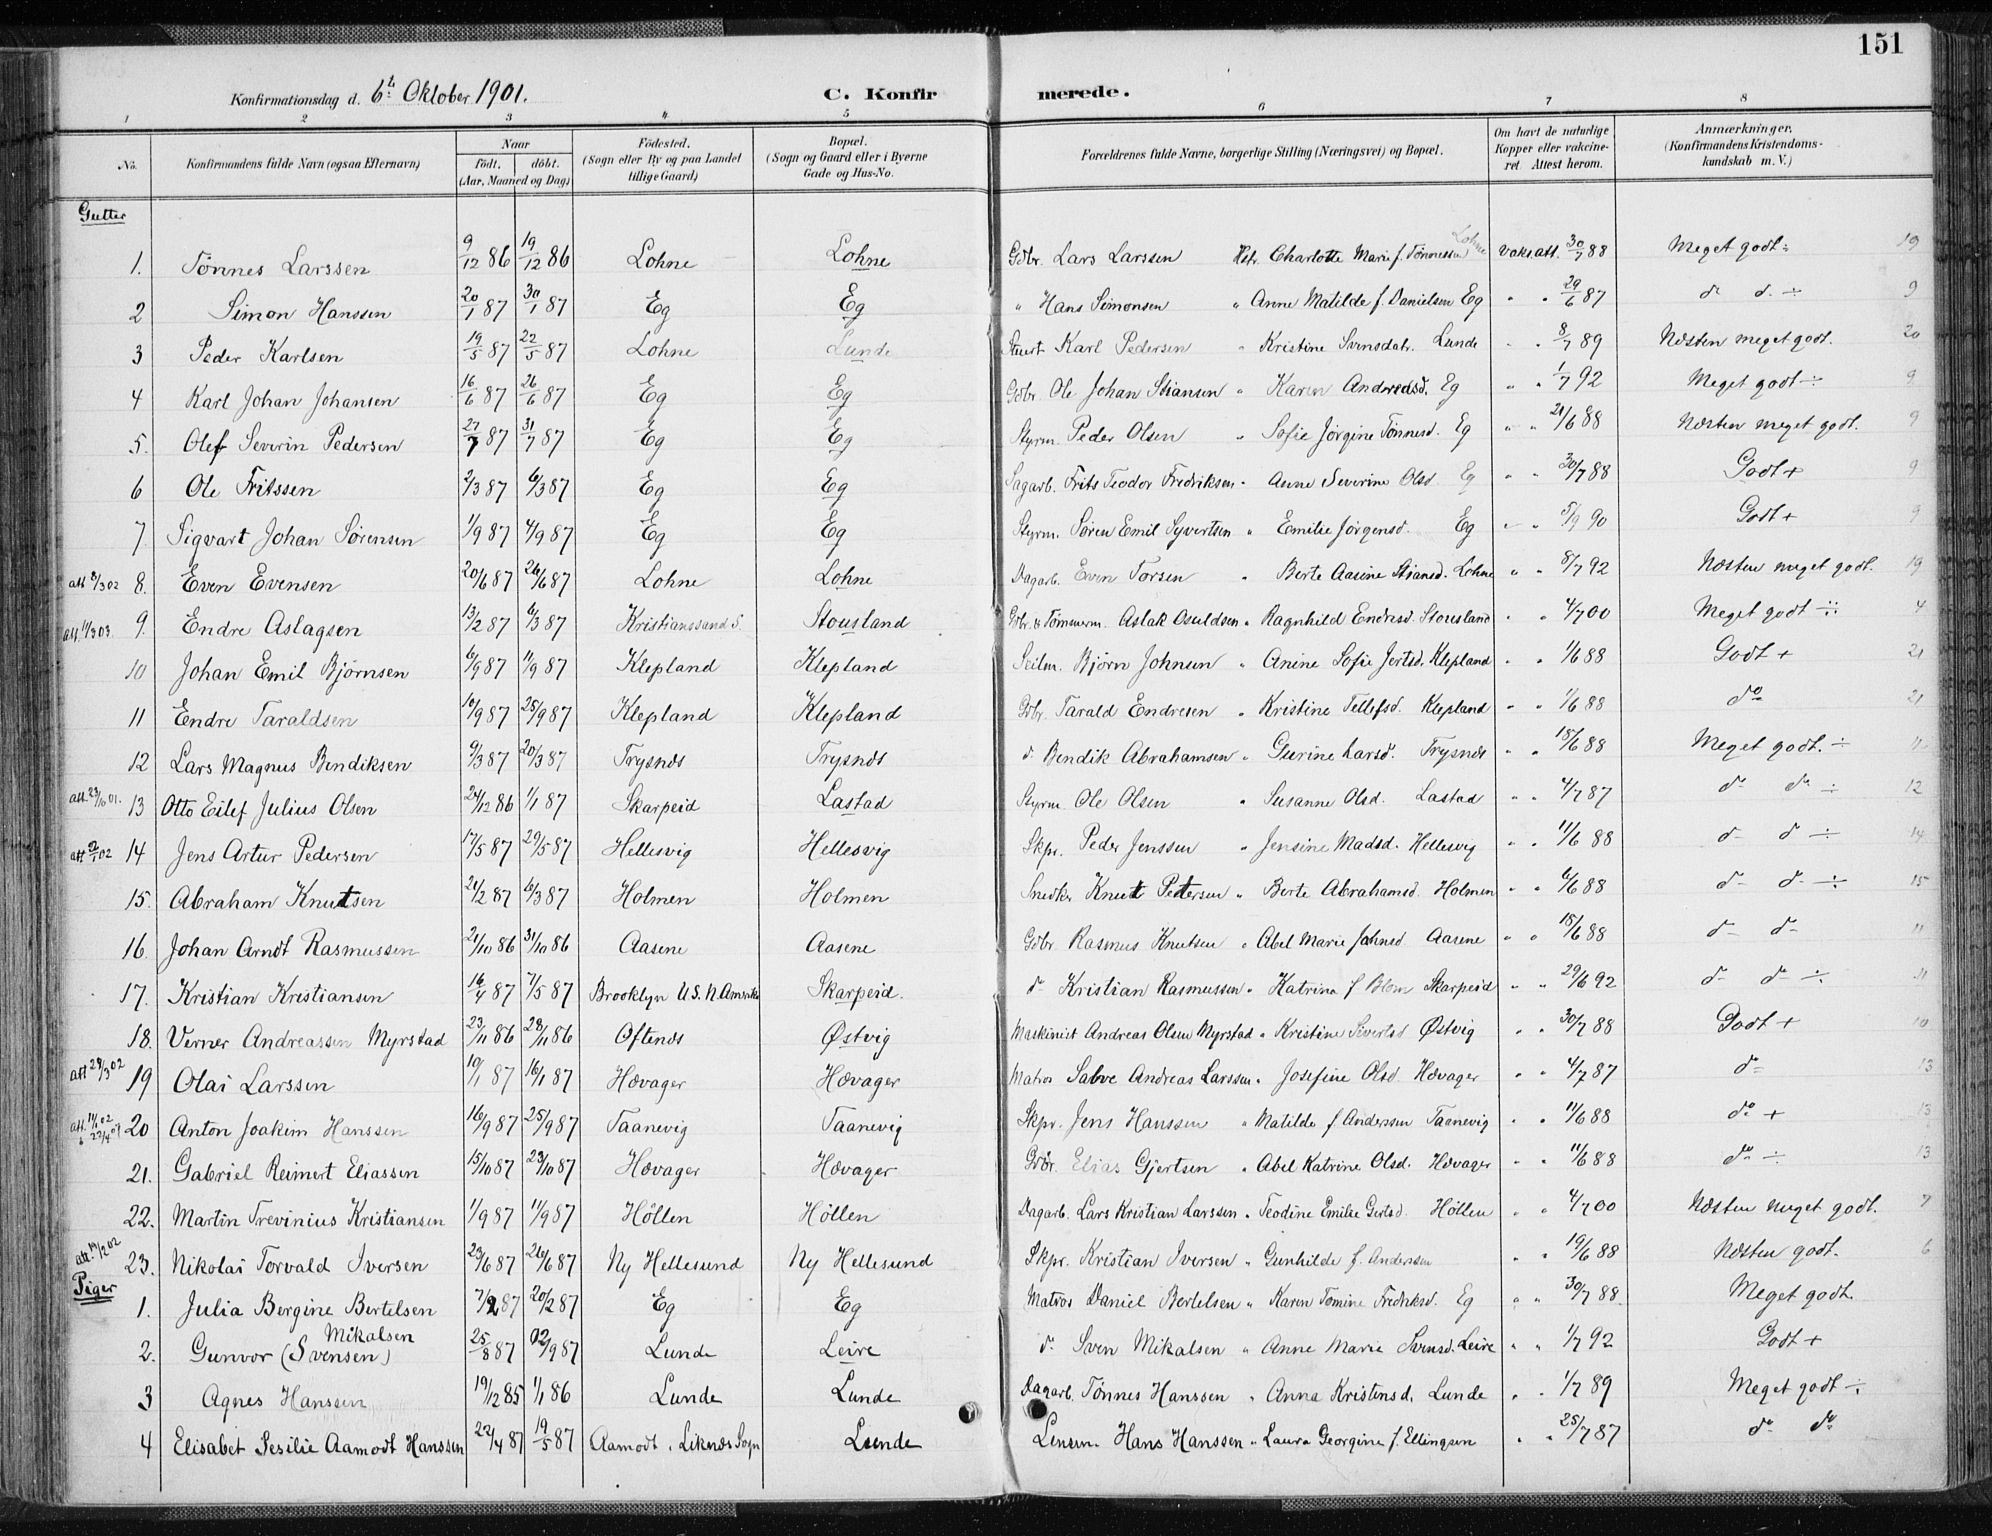 151
Konfirmationsdag d. 6te Oktober 1901. C. Konfirmerede.
1 2 3 4 5 6 7 8
No. Konfirmandens fulde Navn (ogsaa Efternavn) Naar födt. döbt. (Aar, Maaned og Dag) Födested. (Sogn eller By og paa Landet tillige Gaard) Bopæl. (Sogn og Gaard eller i Byerne Gade og Hus-No. Forældrenes fulde Navne, borgerlige Stilling (Næringsvei) og Bopæl. Om havt de naturlige Kopper eller vakcineret. Attest herom. Anmærkninger. (Konfirmandens Kristendomskundskab m. V.)
Gutter
1. Tönnes Larssen 9/12 86 19/12 86 Lohne Lohne Gdbr. Lars Larssen Hstr. Charlotte Marie f. Tönnessen Lohne Vaks.att. 30/7 88 Meget godt ÷ 19
2 Simon Hanssen 20/1 87 30/1 87 Eg Eg " Hans Simonsen " Anne Matilde f. Danielsen Eg " " 29/6 87 do do ÷ 9
3 Peder Karlsen 19/5 87 22/5 87 Lohne Lunde Stuert Karl Pedersen " Kristine Svensdatr. Lunde " " 8/7 89 Næsten meget godt. 20
4 Karl Johan Johansen 16/6 87 26/6 87 Eg Eg Gdbr. Ole Johan Stiansen " Karen Andreasd. Eg " " 1/7 92 Meget godt ÷ 9
5. Olef Severin Pedersen 27/7 87 31/7 87 Eg Eg Styrm. Peder Olsen " Sofie Jörgine Tönnesd. Eg " " 21/6 88 Næsten meget godt. 9
6 Ole Fritssen 2/3 87 6/3 87 Eg Eg Sagarb. Frits Teodor Fredriksen " Anne Severine Olsd. Eg " " 30/7 88 Godt + 9
7. Sigvart Johan Sørensen 1/9 87 4/9 87 Eg Eg Styrm. Sören Emil Syvertsen " Emilie Jörgensd. Eg " " 5/9 90 Godt + 9
att 8/3 02 8. Even Evensen 20/6 87 26/6 87 Lohne Lohne Dagarb. Even Torsen " Berte Aasine Stiansd. Lohne " " 8/7 92 Næsten meget godt. 19
att. 11/3 03. 9. Endre Aslagsen 13/2 87 6/3 87 Kristianssand S. Stousland Gdbr. & Tömmerm. Aslak Osuldsen " Ragnhild Endresd. Stousland " " 4/7 00 Meget godt ÷ 4
10 Johan Emil Bjørnsen 6/9 87 11/9 87 Klepland Klepland Seilm. Bjørn Johnsen " Anine Sofie Jertsd. Klepland " " 1/6 88 Godt + 21
11 Endre Taraldsen 10/9 87 25/9 87 Klepland Klepland Gdbr. Tarald Endresen " Kristine Tellefsd. Klepland " " 1/6 88 do 21
12 Lars Magnus Bendiksen 9/3 87 20/3 87 Trysnæs Trysnæs do Bendik Abrahamsen " Gurine Larsd. Trysnæs " " 18/6 88 Meget godt. ÷ 11
att. 23/10 01. 13 Otto Eilef Julius Olsen 24/12 86 1/1 87 Skarpeid Lastad Styrm. Ole Olsen " Susanne Olsd. Lastad " " 4/7 87 do do ÷ 12
att 2/1 02 14 Jens Artur Pedersen 17/5 87 29/5 87 Hellesvig Hellesvig Skpr. Peder Jenssen " Jensine Madsd. Hellesvig " " 11/6 88 do do ÷ 14
15. Abraham Knutsen 21/2 87 6/3 87 Holmen Holmen Snedkr Knut Petersen " Berte Abrahamsd. Holmen " " 6/6 88 do do ÷ 15
16. Johan Arndt Rasmussen 21/10 86 31/10 86 Aasene Aasene Gdbr. Rasmus Knutsen " Abel Marie Johnsd. Aasene " " 18/6 88 do do 11
17. Kristian Kristiansen 16/4 87 7/5 87 Brooklyn U.S. N. Amerika Skarpeid. do Kristian Rasmussen " Katrina f Blom Skarpeid " " 29/6 92 do do ÷ 11
18. Verner Andreassen Myrstad 23/11 86 28/11 86 Oftenæs Østvig Maskinist Andreas Olsen Myrstad " Kristine Sivertsd Østvig " " 30/7 88 Godt + 10
att 29/3 02 19 Olai Larssen 10/1 87 16/1 87 Hævager Hævager Matros Salve Andreas Larssen " Josefine Olsd. Hævager " " 4/7 87 do 13
att. 14/1 02 20 Anton Joakim Hanssen 16/9 87 25/9 87 Taanevig Taanevig Skpr. Jens Hanssen " Matilde f Anderssen Taanevig " " 11/6 88 do + 13
21. Gabriel Reinert Eliassen 15/10 87 23/10 87 Hævager Hævager Gdbr. Elias Gjertsen " Abel Katrine Olsd. Hævager " " 11/6 88 do ÷ 13
22. Martin Trevinius Kristiansen 1/9 87 11/9 87 Höllen Höllen Dagarb. Lars Kristian Larssen " Teodine Emilie Gertsd. Höllen " " 4/7 00 Næsten meget godt. 7
att. 19/2 02 23. Nikolai Torvald Iversen 23/6 87 26/6 87 Ny Hellesund Ny Hellesund Skpr. Kristian Iversen " Gunhilde f. Anderssen " " 19/6 88 Næsten godt. 6
Piger
1. Julia Bergine Bertelsen 7/2 87 20/2 87 Eg Eg Matros Daniel Bertelsen " Karen Tomine Fredriksd. Eg " " 30/7 88. Meget godt.
2. Gunvor (Svensen) Mikalsen 25/8 87 02/9 87 Lunde Leire do Sven Mikalsen " Anne Marie Svensd. Leire " " 1/7 92 Godt +
3 Agnes Hanssen 19/12 85 1/1 86 Lunde Lunde Dagarb. Tönnes Hanssen " Anna Kristensd. Lunde " " 1/7 89 Meget godt ÷
4 Elisabet Sesilie Aamodt Hanssen 22/4 87 19/5 87 Aamodt, Likenæs Sogn Lunde Lensm. Hans Hanssen " Laura Georgine f. Ellingsen " " 25/7 87 do do